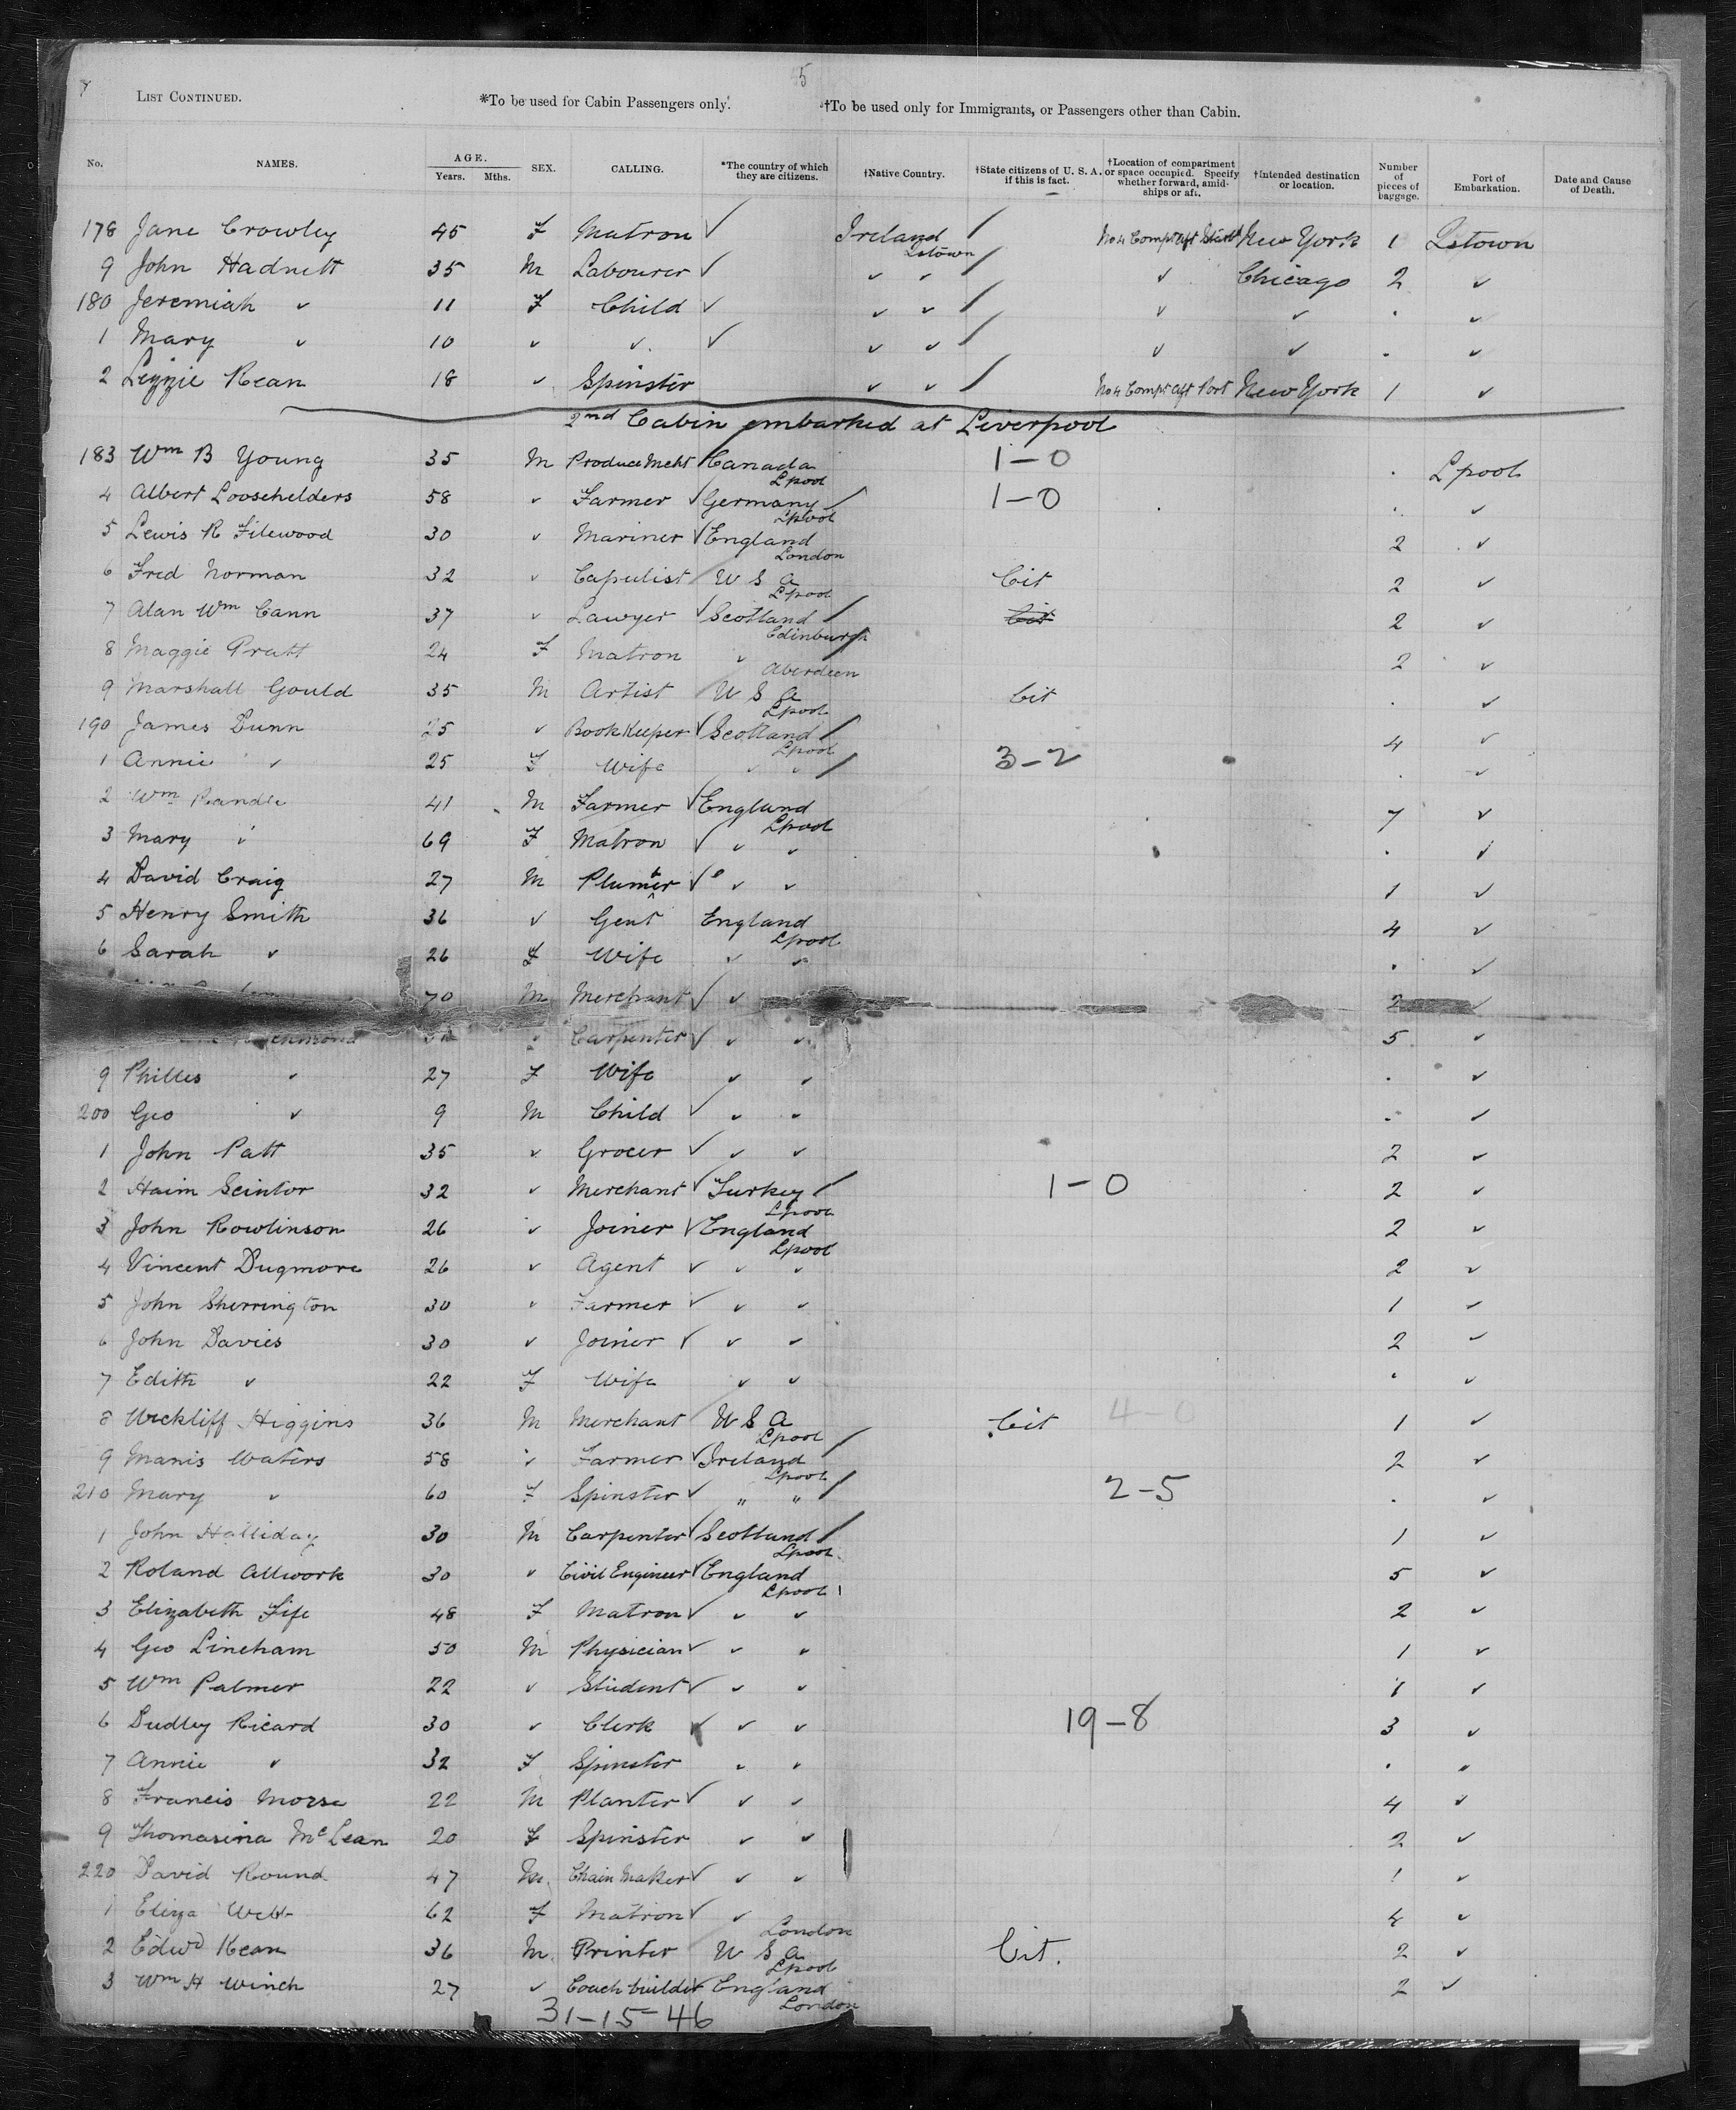 5
List Continued. *To be used for Cabin Passengers only. †To be used only for Immigrants, or Passengers other than Cabin.
No. NAMES. AGE. Years. Mths. SEX. CALLING. *The country of which they are citizens. †Native Country. †State citizens of U. S. A. if this is fact. †Location of compartment or space occupied. Specify whether forward, amidships or aft. †Intended destination or location. Number of pieces of baggage. Port of Embarkation. Date and Cause of Death.
178 Jane Crowley 45 F Matron ✓ Ireland Qstown / No 4 Compt aft New York 1 Qstown
9 John Hadnett 35 M Labourer ✓ ✓ ✓ / ✓ Chicago 2 ✓
180 Jeremiah ✓ 11 F Child ✓ ✓ ✓ / ✓ ✓ . ✓
1 Mary ✓ 10 ✓ ✓ ✓ ✓ ✓ / ✓ ✓ . ✓
2 Lizzie Kean 18 ✓ Spinster ✓ ✓ / No 4 Compt aft Port New York 1 ✓
2nd Cabin embarked at Liverpool
183 Wm B Young 35 M Produce Mcht Canada Lpool 1-0 . Lpool
4 Albert Loosehelders 58 ✓ Farmer ✓ Germany Lpool / 1-0 . ✓
5 Lewis R Filewood 30 ✓ Mariner ✓ England London 2 ✓
6 Fred Norman 32 ✓ Capulist U S A Lpool Cit 2 ✓
7 Alan Wm Cann 37 ✓ Lawyer ✓ Scotland Edinburgh / Cit 2 ✓
8 Maggie Pratt 24 F Matron ✓ Aberdeen / 2 ✓
9 Marshall Gould 35 M Artist U S A Lpool Cit . ✓
190 James Dunn 25 ✓ Book Keeper ✓ Scotland Lpool / 4 ✓
1 Annie ✓ 25 F Wife ✓ ✓ / 3-2 . ✓
2 Wm Randle 41 M Farmer ✓ England Lpool 7 ✓
3 Mary ✓ 69 F Matron ✓ ✓ ✓ . ✓
4 David Craig 27 M Plumber ✓ ✓ ✓ 1 ✓
5 Henry Smith 36 ✓ Gent England Lpool 4 ✓
6 Sarah ✓ 26 F Wife ✓ ✓ . ✓
70 M Merchant ✓ ✓ 2 ✓
✓ Carpenter ✓ ✓ ✓ 5 ✓
9 Philles ✓ 27 F Wife ✓ ✓ . ✓
200 Geo ✓ 9 M Child ✓ ✓ ✓ . ✓
1 John Patt 35 ✓ Grocer ✓ ✓ ✓ 2 ✓
2 Haim Scintor 32 ✓ Merchant ✓ Turkey Lpool / 1-0 2 ✓
3 John Rowlinson 26 ✓ Joiner ✓ England Lpool 2 ✓
4 Vincent Dugmore 26 ✓ Agent ✓ ✓ ✓ 2 ✓
5 John Sherrington 30 ✓ Farmer ✓ ✓ ✓ 1 ✓
6 John Davies 30 ✓ Joiner ✓ ✓ ✓ 2 ✓
7 Edith ✓ 22 F Wife ✓ ✓ . ✓
8 Wickliff Higgins 36 M Merchant U S A Lpool Cit 4-0 1 ✓
9 Manis Waters 58 ✓ Farmer ✓ Ireland Lpool / 2 ✓
210 Mary ✓ 60 F Spinster ✓ " " / 2-5 . ✓
1 John Halliday 30 M Carpenter ✓ Scotland Lpool / 1 ✓
2 Roland Allwork 30 ✓ Civil Engineer ✓ England Lpool 5 ✓
3 Elizabeth Fife 48 F Matron ✓ ✓ ✓ 2 ✓
4 Geo Lineham 50 M Physician ✓ ✓ ✓ 1 ✓
5 Wm Palmer 22 ✓ Student ✓ ✓ ✓ 1 ✓
6 Dudley Ricard 30 ✓ Clerk ✓ ✓ ✓ 19-8 3 ✓
7 Annie ✓ 32 F Spinster ✓ ✓ . "
8 Francis Morse 22 M Planter ✓ ✓ ✓ 4 ✓
9 Thomasina McLean 20 F Spinster ✓ ✓ 2 ✓
220 David Round 47 M Chain Maker ✓ ✓ ✓ 1 ✓
1 Eliza Webb 62 F Matron ✓ ✓ London 4 ✓
2 Edwd Kean 36 M Printer U S A Lpool Cit. 2 ✓
3 Wm H Winch 27 ✓ Coach builder ✓ England London 2 ✓
31-15-46